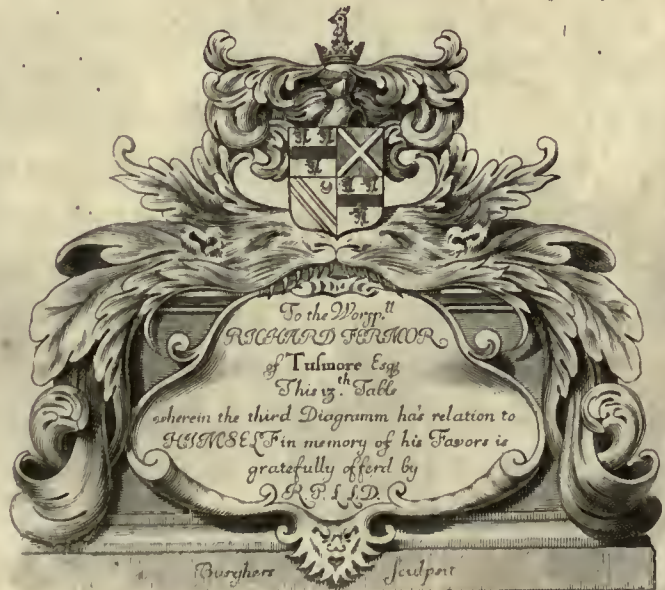 To the Worsp.ll
RICHARD FERMOR
of Tusmore Esq;
This 13.th Table
wherein the third Diagramm has relation to
HIMSELF in memory of his Favors is
gratefully offerd by
R.P.L.L.D.
Burghers sculpsit